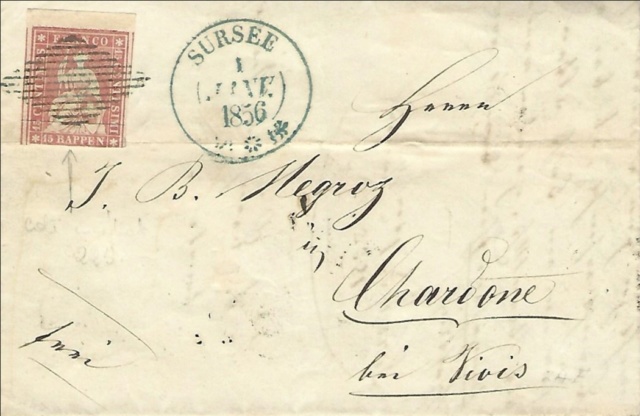 FRANCO
15 RAPPEN
SURSEE
1
1856
Herrn
J. B. Negroz
in
Chardone
bei Vivis
frei